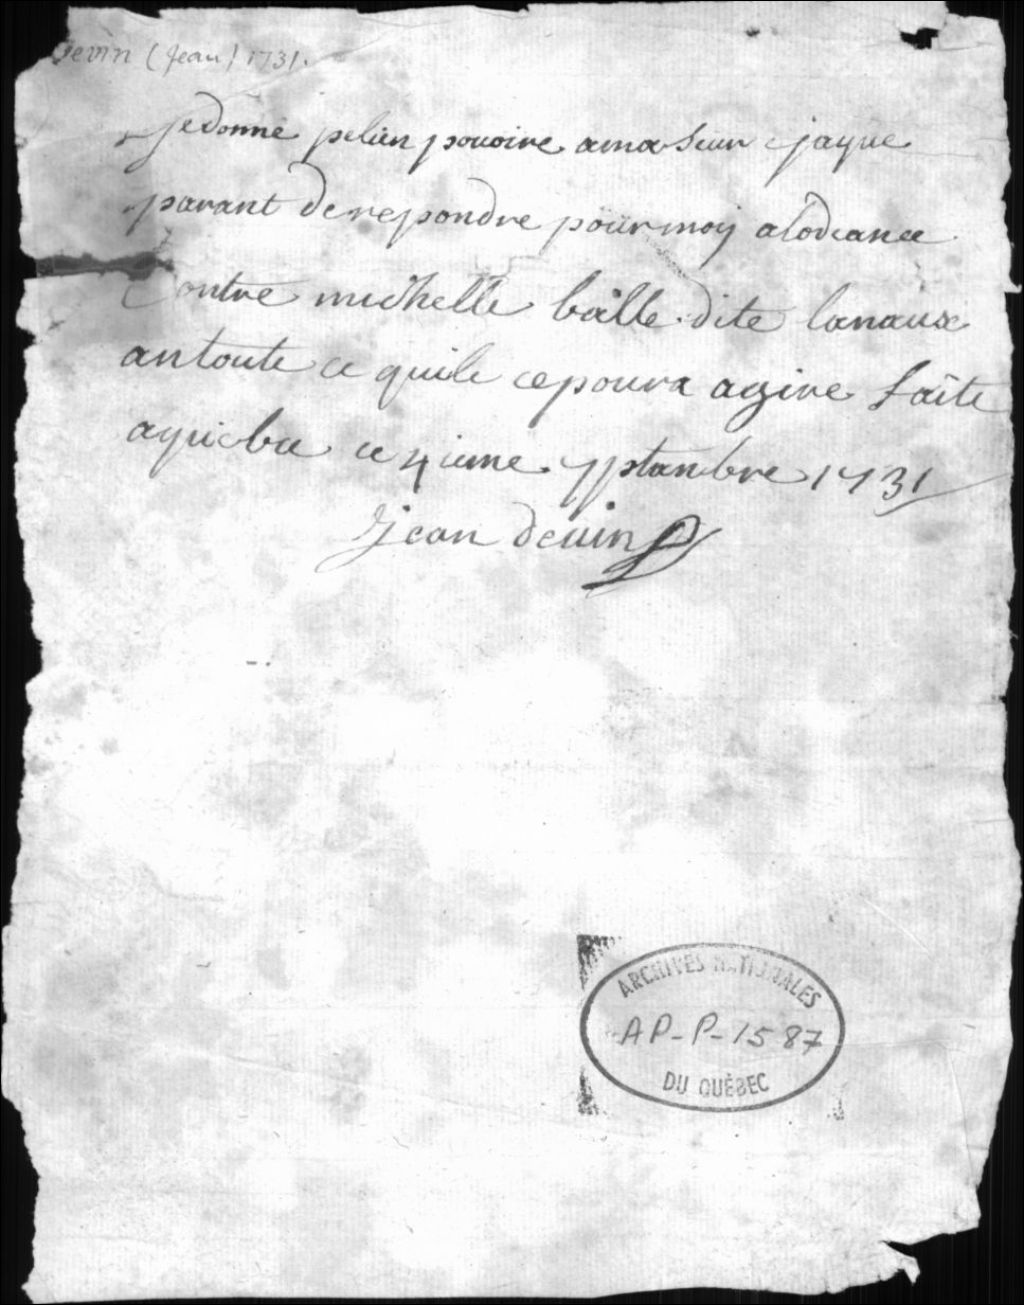 Devin (Jean) 1731.
Je donne pelien pouoire a ma seur jaque
parant de repondre pour moy a lodiance
Contre michelle balle dite lanaux
an toute ce quile ce poura agire faite
a quiebec ce 4 ieme 7ptanbre 1731
Jean devin
ARCHIVES NATIONALES
AP-P-1587
DU QUÉBEC